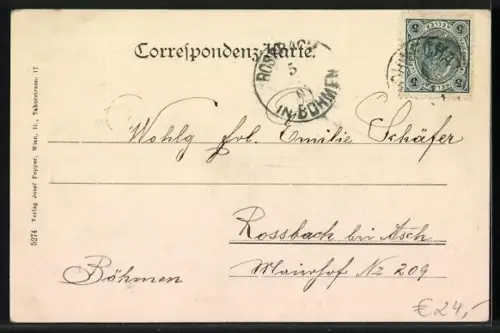 Correspondenz-Karte.
ROSSBACH
5
IN BÖHMEN
Wohlg frl. Emilie Schäfer
Rossbach bei Asch
Mainhof Nr 209
Böhmen
5274 Verlag Josef Popper, Wien, II., Taborstrasse 17
€ 24,-